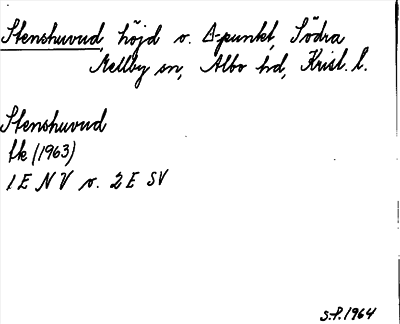 Stenshuvud, höjd o. Δ-punkt, Södra
Mellby sn, Albo hd, Krist. l.
Stenshuvud
tk (1963)
1 E N V o. 2 E SV
S.P. 1964